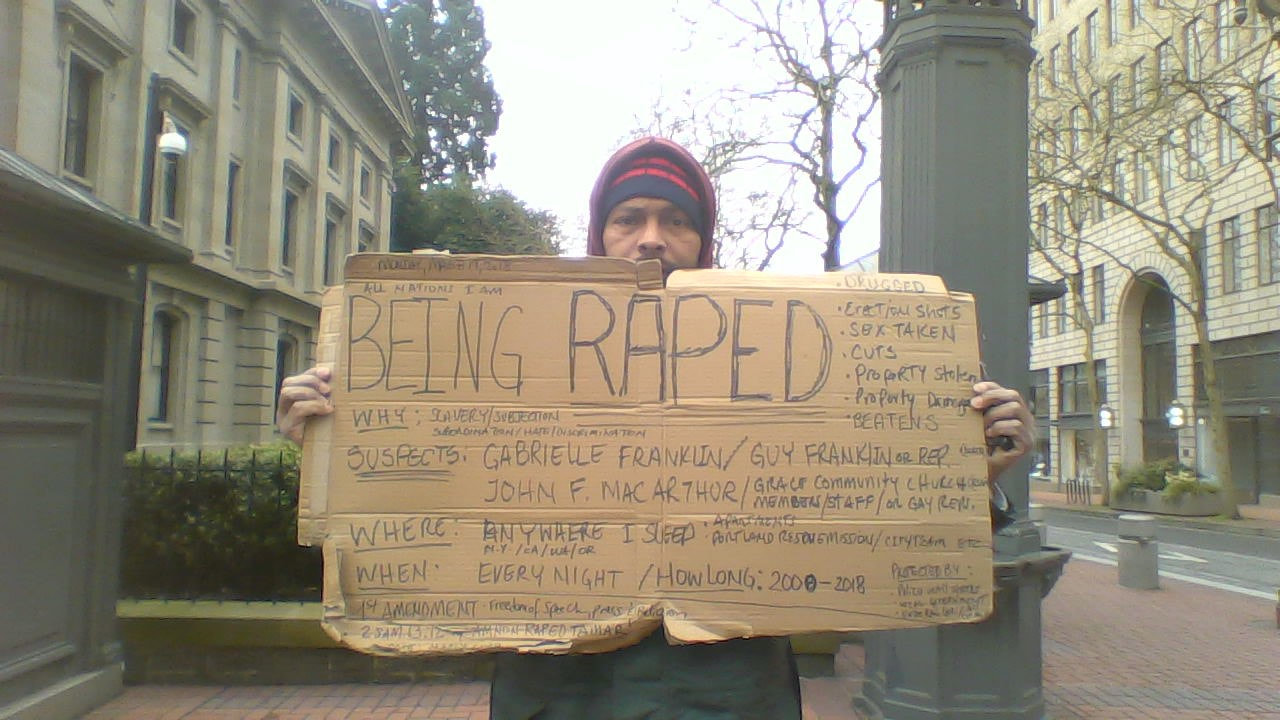 MONDAY, MARCH 19, 2018
ALL NATIONS I AM
BEING RAPED
• DRUGGED
• ERECTION SHOTS
• SEX TAKEN
• CUTS
• PROPERTY Stolen
• Property Damage
• BEATENS
WHY: SLAVERY/SUBJECTION
SUBORDINATION/HATE/DISCRIMINATION
SUSPECTS: GABRIELLE FRANKLIN/ GUY FRANKLIN OR REP.
JOHN F. MACARTHUR/GRACE COMMUNITY CHURCH
MEMBERS/STAFF/OR GAY REP.
WHERE: ANYWHERE I SLEEP • APARTMENTS
N.Y./CA/WA/OR • PORTLAND RESCUE MISSION/CITYTEAM ETC
WHEN: EVERY NIGHT / HOW LONG: 2000-2018
PROTECTED BY:
1ST AMENDMENT • Freedom of Speech, press & Religion
2 SAM. 13:12 AMNON RAPED TAMAR